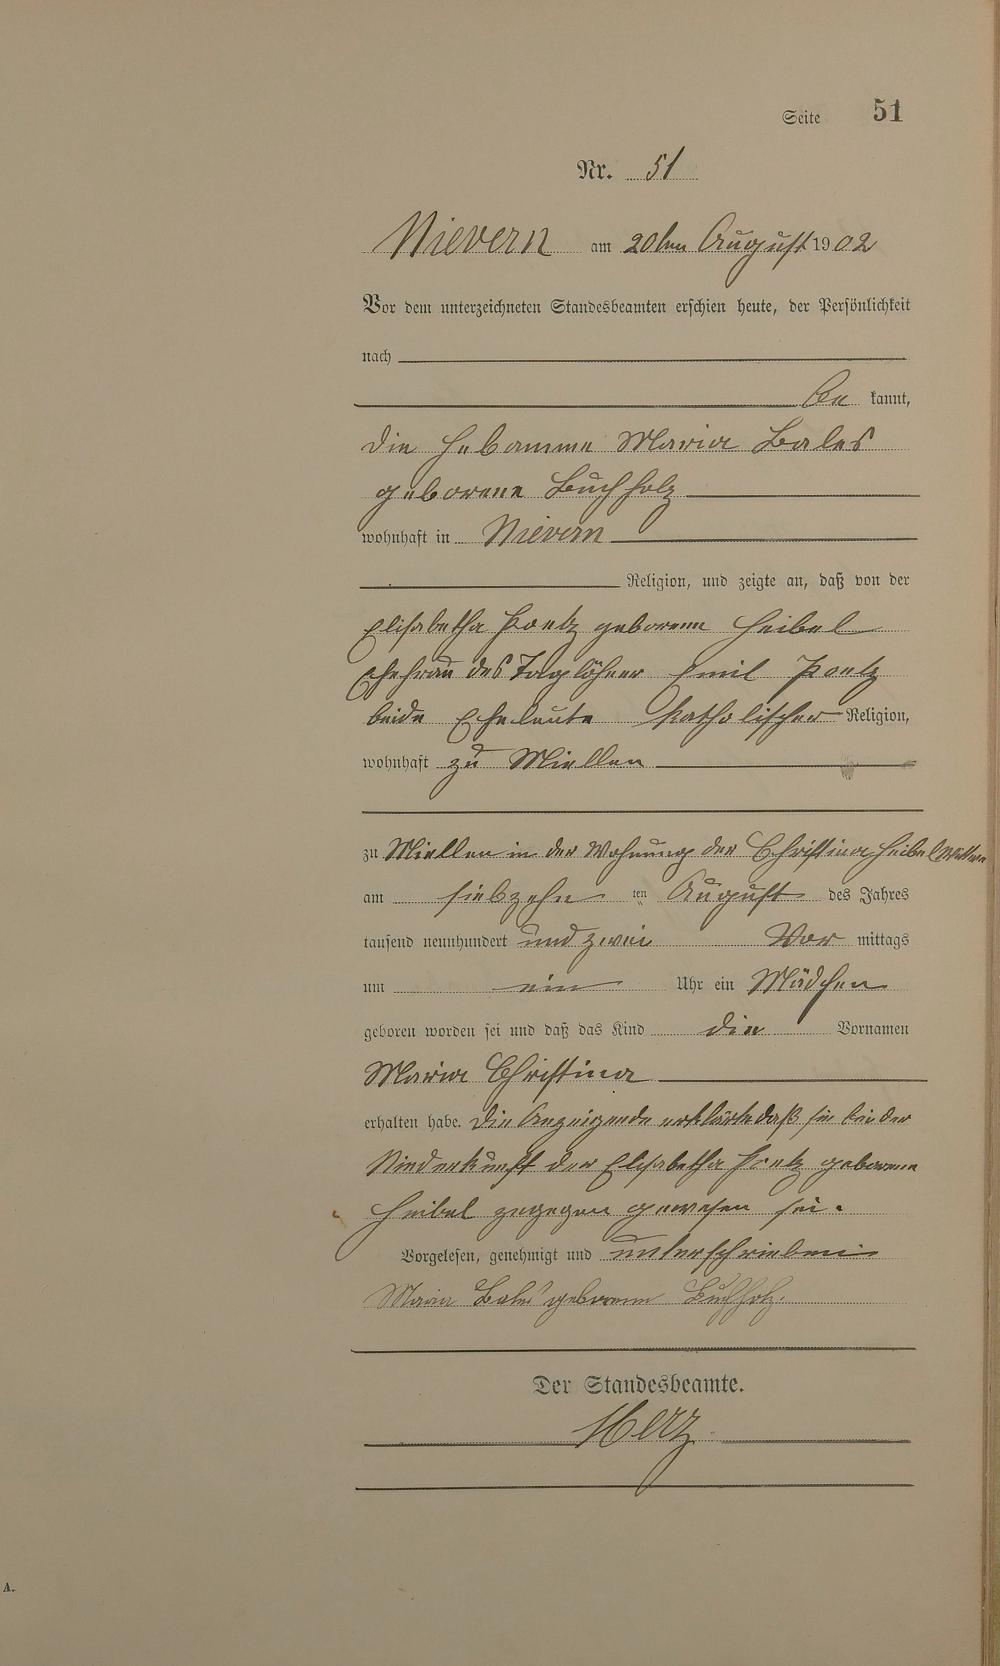 Seite 51
Nr. 51
Nievern am 20ten August 1902
Vor dem unterzeichneten Standesbeamten erschien heute, der Persönlichkeit
nach
be kannt,
die Hebamme Maria Bales
geborene Buchholz
wohnhaft in Nievern
Religion, und zeigte an, daß von der
Elisabetha geborenen Heibel
Ehefrau des Taglöhner Emil
beide Eheleute katholischer Religion,
wohnhaft zu Miellen
zu Miellen in der Wohnung der Christina Heibel Wittwe
am siebzehn ten August des Jahres
tausend neunhundert und zwei Vor mittags
um ein Uhr ein Mädchen
geboren worden sei und daß das Kind die Vornamen
Maria Christina
erhalten habe. Die Anzeigende erklärte daß sie bei der
Niederkunft der Elisabetha geborenen
Heibel zugegen gewesen sei.
Vorgelesen, genehmigt und unterschrieben
Maria Bales geborene Buchholz.
Der Standesbeamte.
Herz
A.